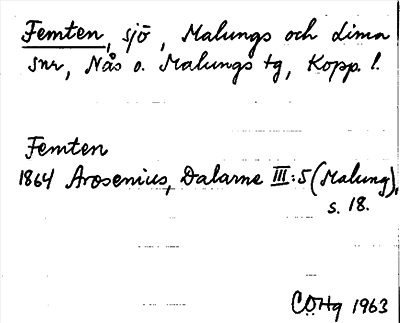 Femten, sjö, Malungs och Lima
snr, Nås o. Malungs tg, Kopp. l.
Femten
1864 Arosenius, Dalarne III:5 (Malung),
s. 18.
CÖHg 1963